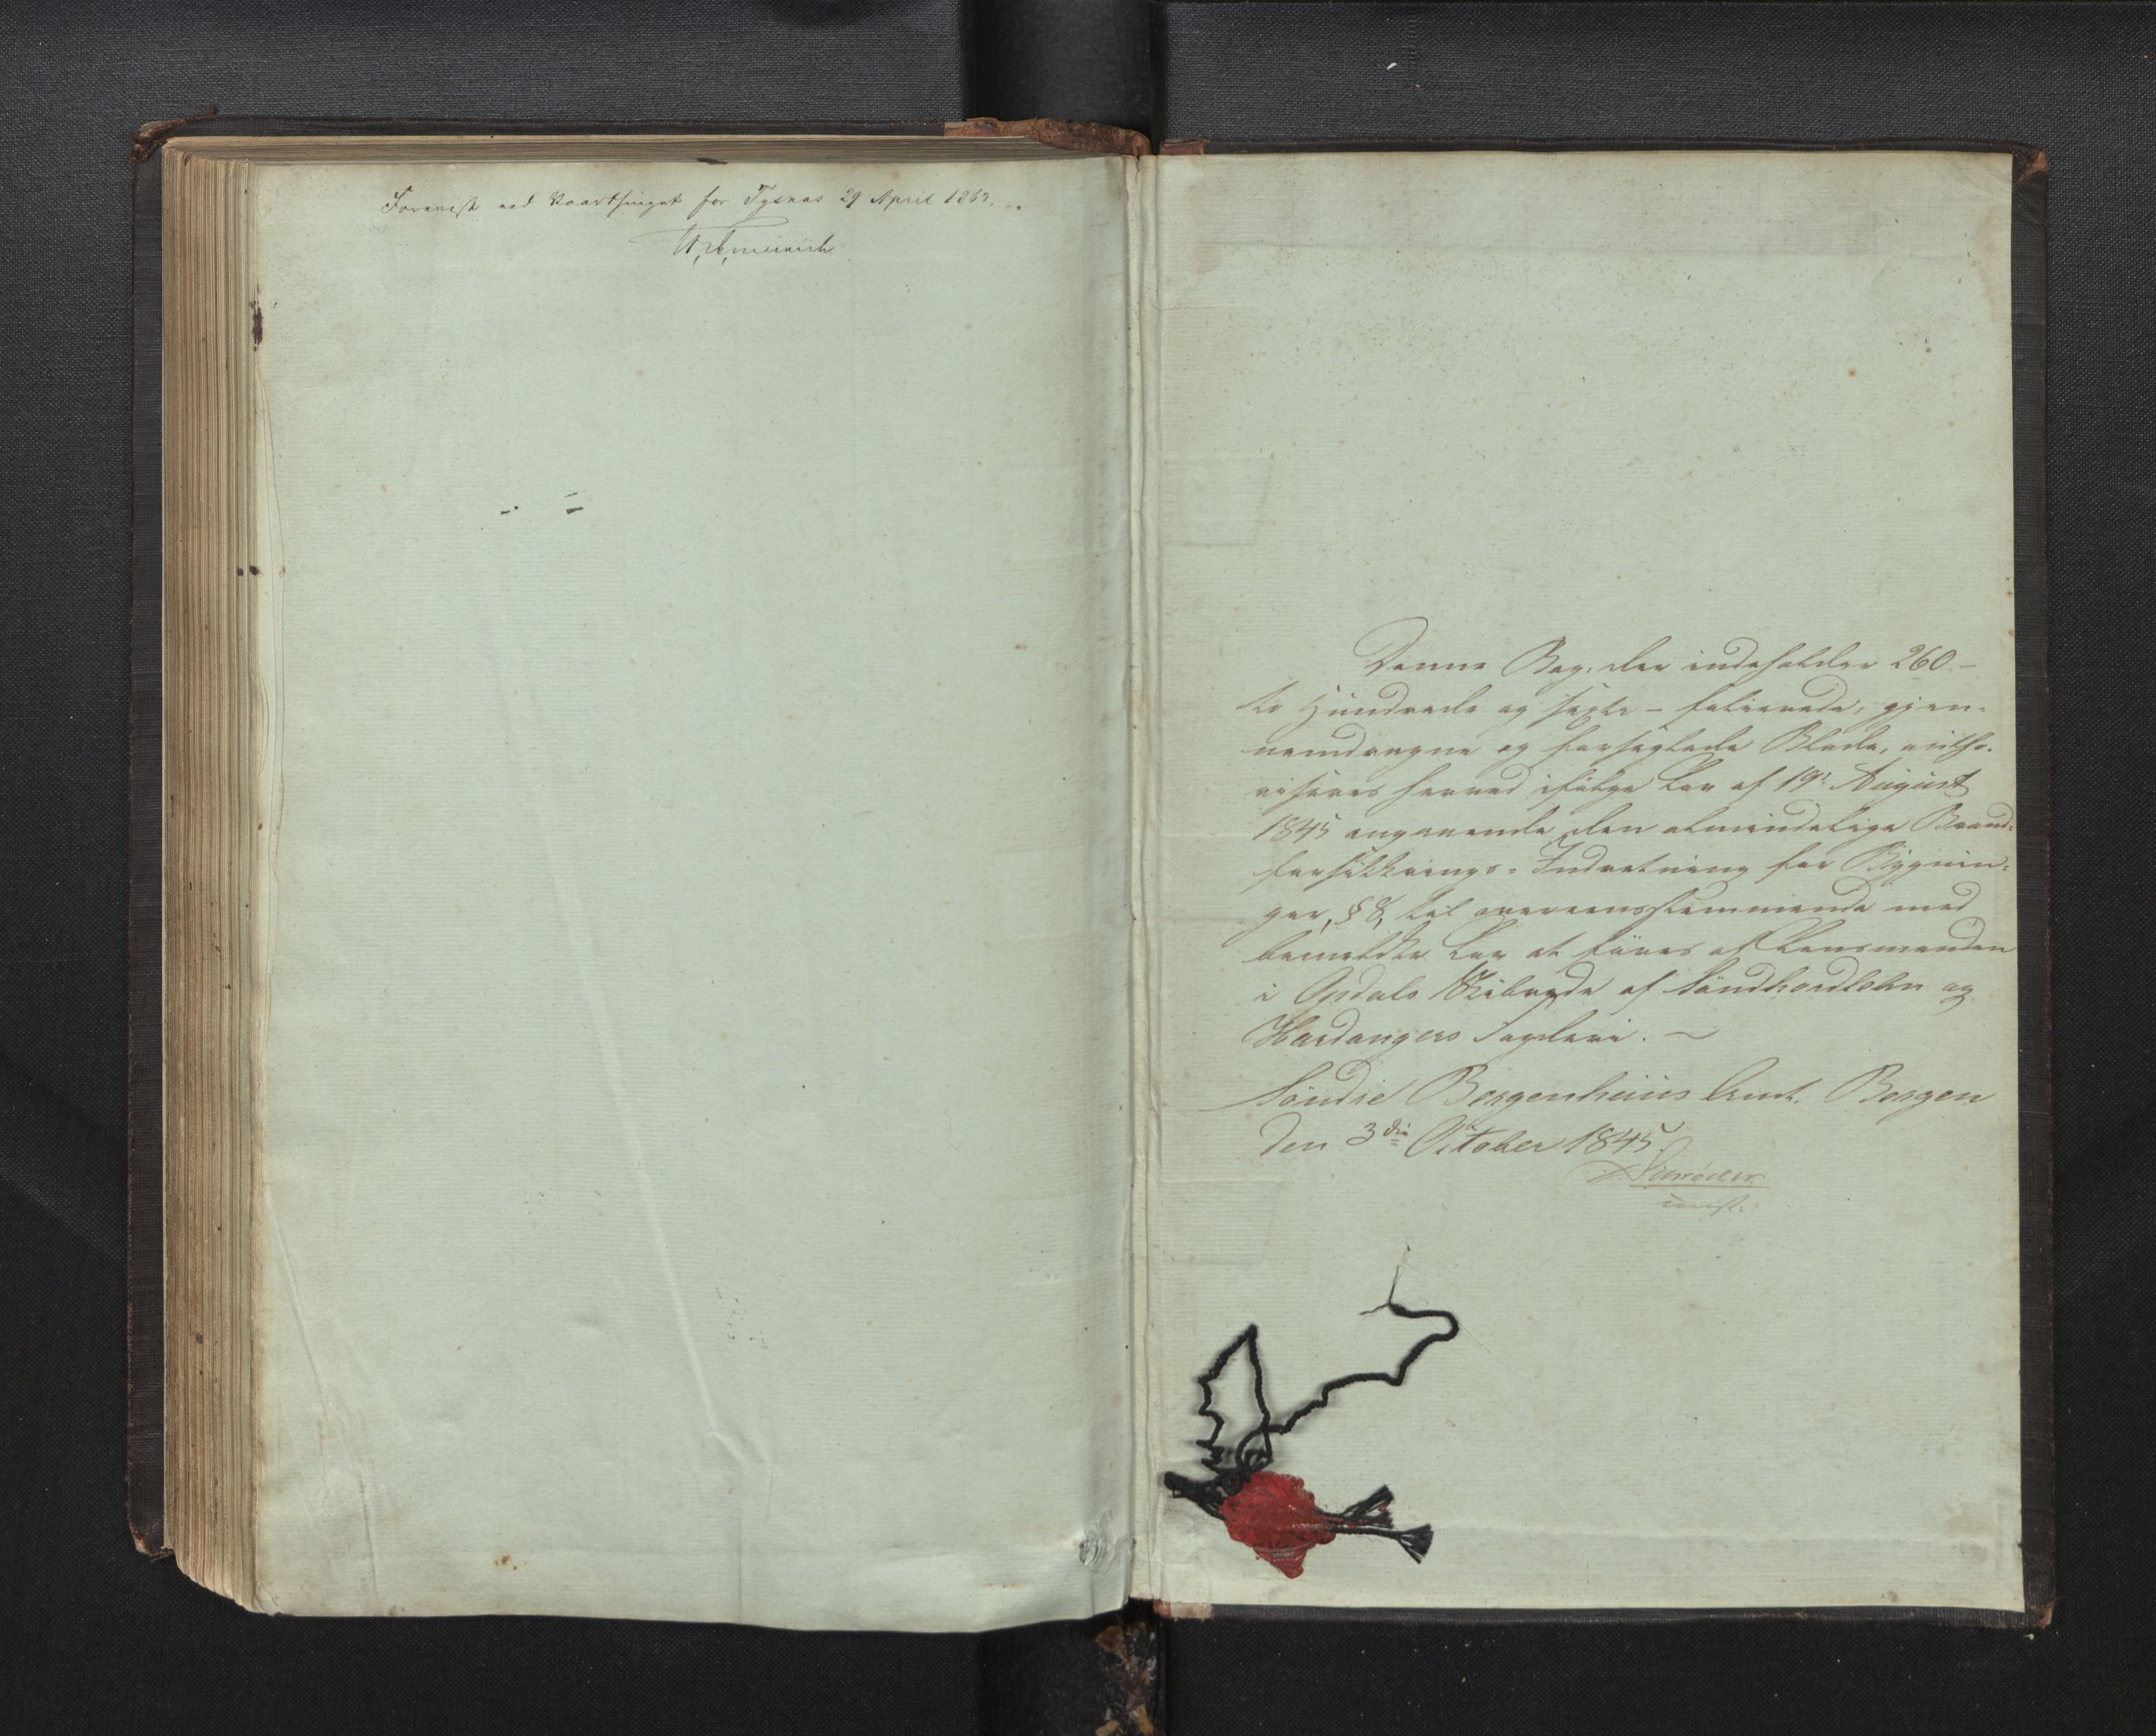 Forevist ved Vaarthinget for Tysnæs 29 April 1863.
Denne Bog, der indeholder 260 –
to Hundrede og sexti – folierede, gjen-
nemdragne og forseglede Blade, autho-
riseres herved ifølge Lov af 19de August
1845 angaaende den almindelige Brand-
forsikkrings-Indretning for Bygnin-
ger, § 8, til overeensstemmende med
bemeldte Lov at føres af Lensmanden
i Opdals Skibrede af Søndhordlehn og
Hardangers Fogderi. –
Søndre Bergenhuus Amt. Bergen
den 3die October 1845.
Schrøder
const.